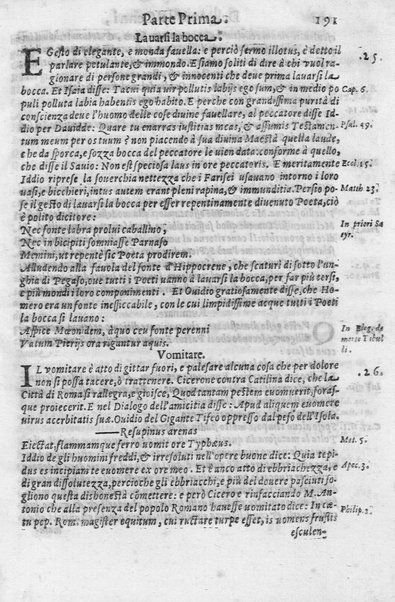 Parte Prima. 191
Lauarsi la bocca.
EGesto di elegante, e monda fauella: e perciò sermo illotui, è detto il
parlare petulante, & immondo. E siamo soliti di dire à chi vuol ra-
gionare di persone grandi, & innocenti che deue prima lauarsi la
bocca. Et Isaia disse: Tacui quia vir pollutis labijs ego sum, & in medio po
puli polluta labia habentis ego habito. E perche con grandissima purità di
conscienza deue l'huomo delle cose diuine fauellare, al peccatore disse Id
dio per Dauidde: Quare tu enarras iustitias meas, & assumis Testamen-
tum meum per os tuum è non piacendo à sua diuina Maestà quella laude,
che da sporca, e sozza bocca del peccatore le vien data: conforme à quello,
che disse il Sauio: Non est speciosa laus in ore peccatoris. E meritamente
Iddio riprese la souerchia nettezza che i Farisei usauano intorno i loro
uasi, e bicchieri, intus autem erant pleni rapina, & immunditia. Persio po-
se il gesto di lauarsi la bocca per esser repentinamente diuenuto Poeta, ciò
è polito dicitore:
Nec fonte labra prolui caballino,
Nec in bicipiti somniasse Parnaso
Memini, ut repentè sic Poeta prodirem.
Alludendo alla fauola del fonte d'Hippocrene, che scaturì di sotto l'un-
ghia di Pegaso, oue tutti i Poeti uanno à lauarsi la bocca, per far più tersi,
e più mondi i loro componimenti. Et Ouidio gratiosamente disse, che Ho-
mero era un fonte inesiccabile, con le cui limpidissime acque tutti i Poeti
la bocca si lauano:
Aspice Mæonidem, à quo ceu fonte perenni
Vatum Pierijs ora rigantur aquis.
Vomitare.
IL vomitare è atto di gittar fuori, e palesare alcuna cosa che per dolore
non si possa tacere, ò trattenere. Cicerone contra Catilina dice, che la
Città di Roma si rallegra, e gioisce, Quod tantam pestem euomuerit, foras'
que proiecerit. E nel Dialogo dell'amicitia disse: Apud aliquem euomere
virus acerbitatis suæ. Ouidio del Gigante Tifeo oppresso dal peso dell'Isola.
——Resupinus arenas
Eiectat, flammamque ferro uomit ore Typhæus.
Iddio de gli huomini freddi, & irresoluti nell'opere buone dice: Quia tepi-
dus es incipiam te euomere ex ore meo. Et è anco atto di ebbriachezza, e
di gran dissolutezza, percioche gli ebbriachi, e più del douere pasciuti so-
gliono questa dishonestà cõmettere: e però Cicerone rinfacciando M. An-
tonio che alla presenza del popolo Romano hauesse uomitato dice: In cæ-
tu pop. Rom. magister equitum, cui ructare turpe esset, is uomens frustis
esculen-
.25.
Cap. 6.
Psal. 49.
Eccl. 15.
Matth. 23.
In priori Sa
tyr.
In Eleg. de
morte Tibul
li.
.26.
Met. 5.
Apoc. 3.
Philip. 2.